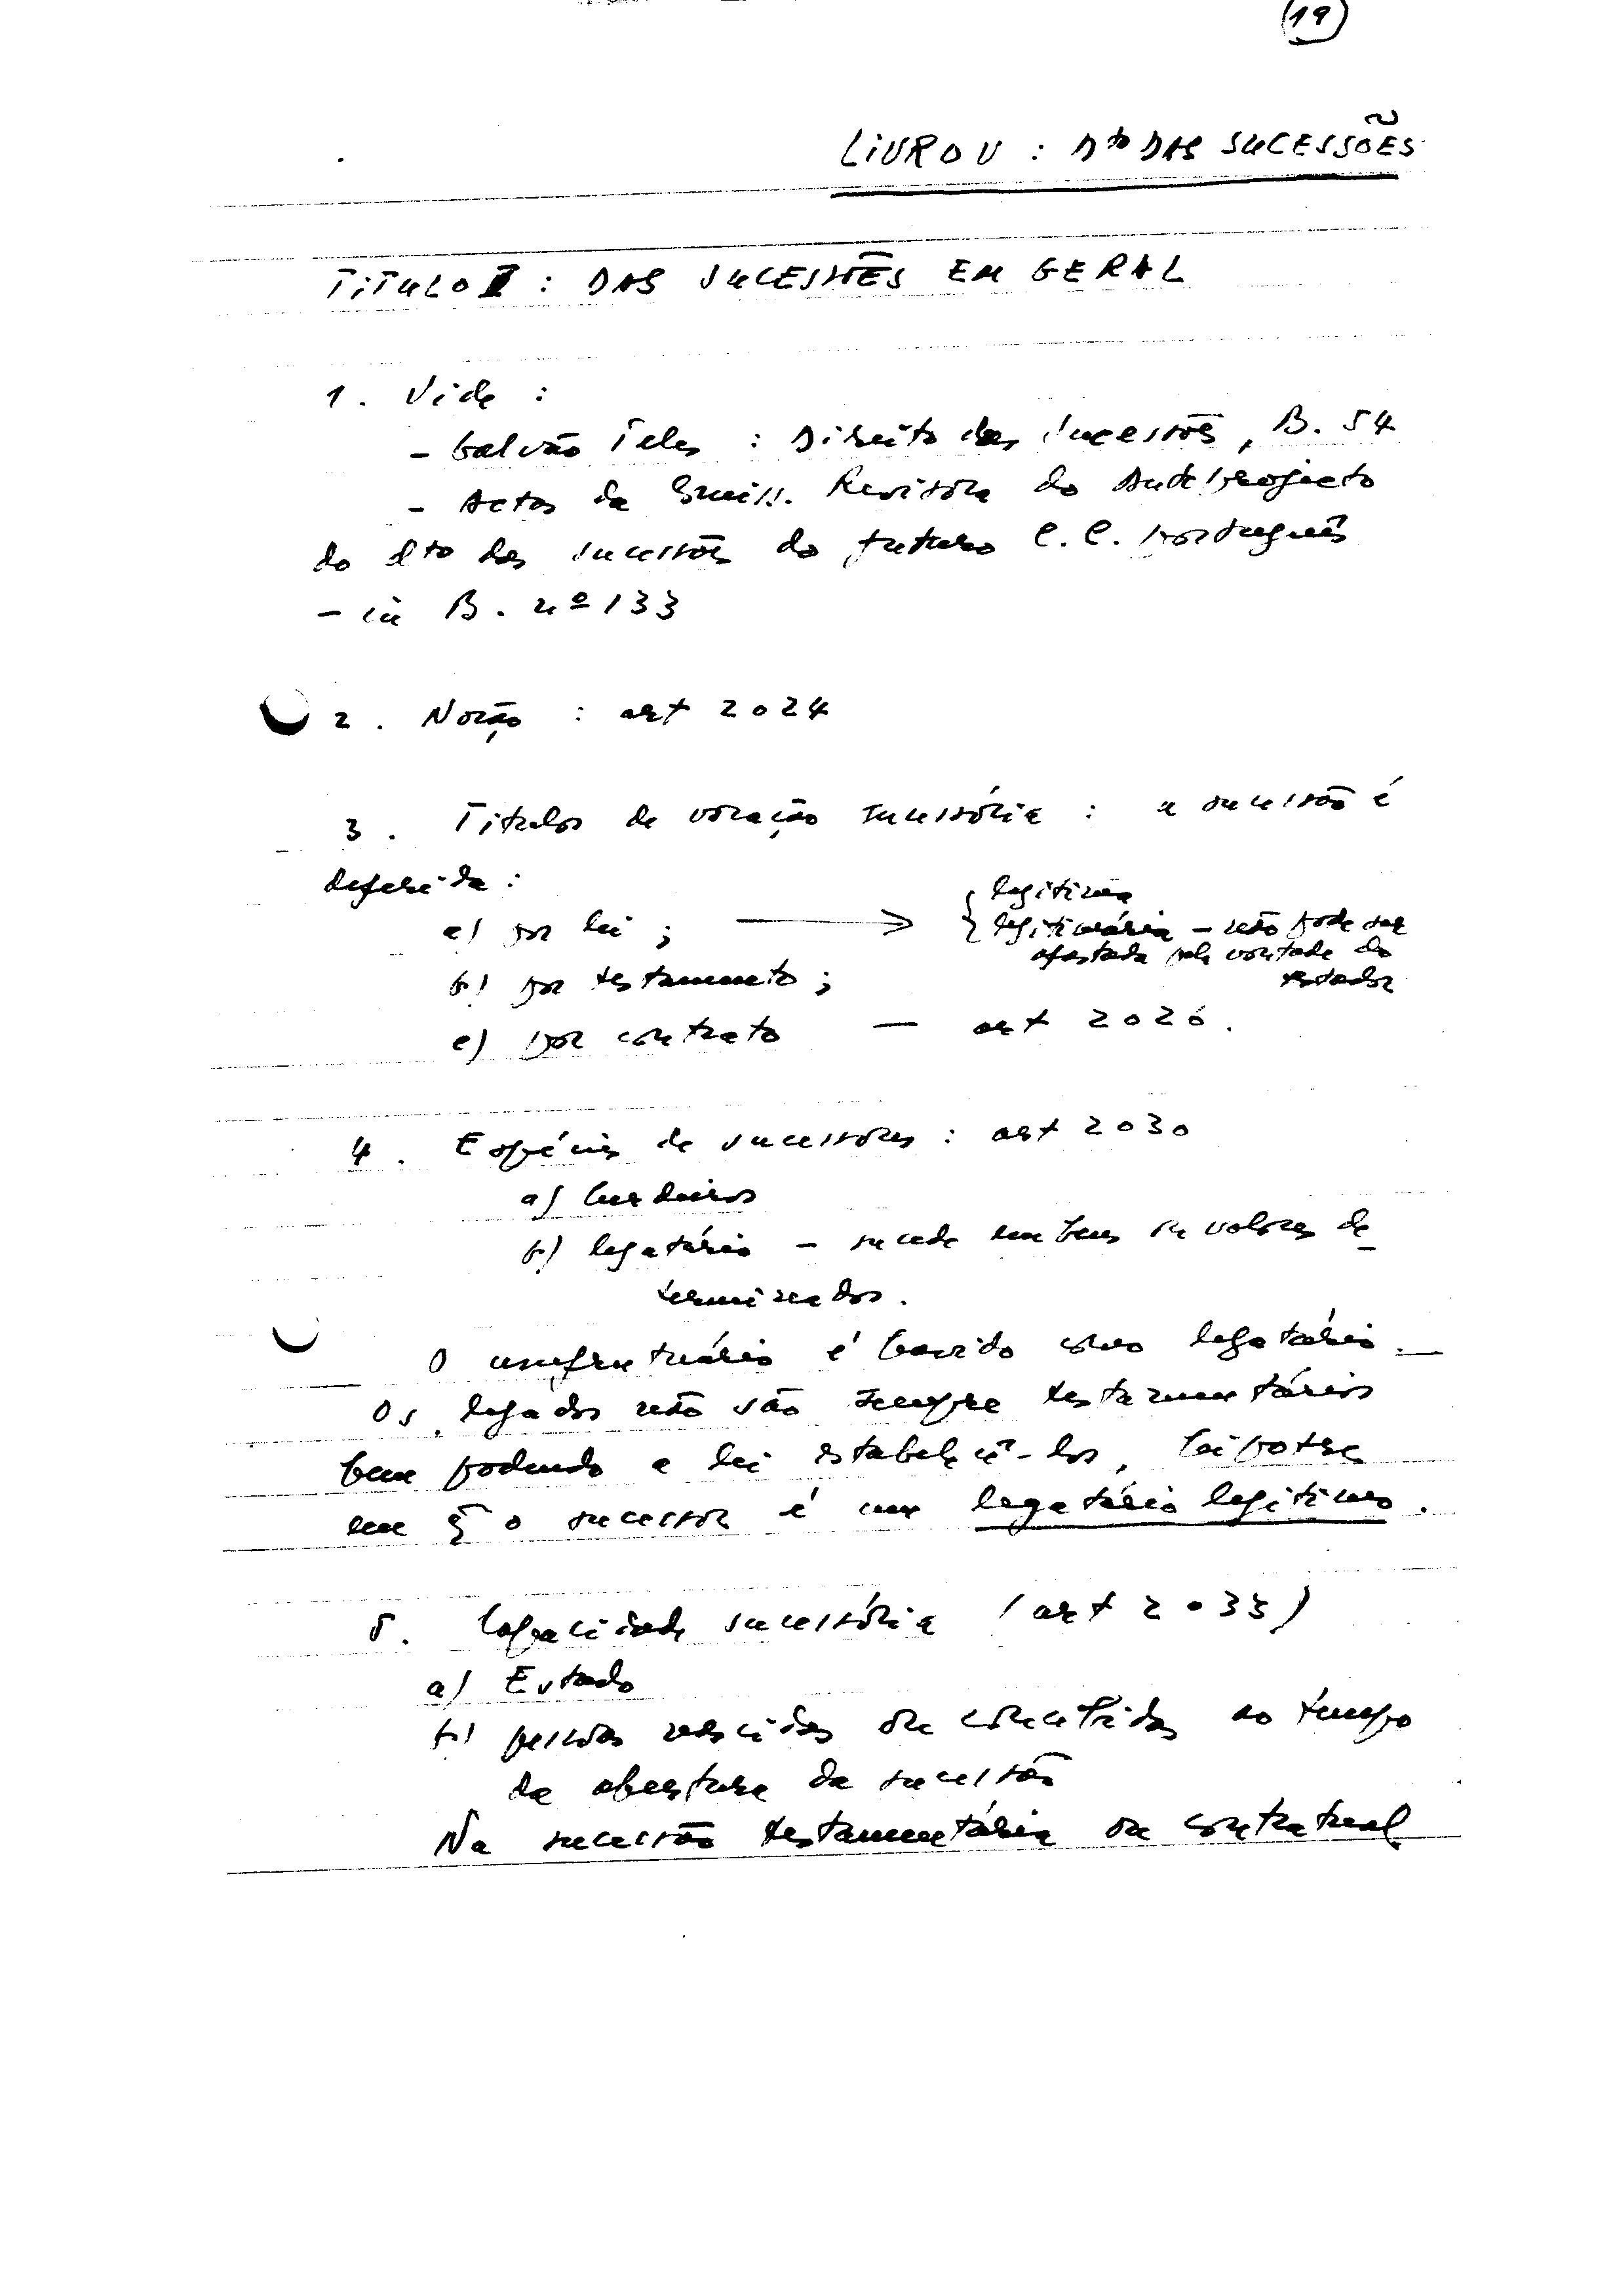 19
LIVRO V : Dto DAS SUCESSÕES
TITULO I : DAS SUCESSÕES EM GERAL
1. Vide :
- Galvão Teles : Direito das Sucessões, B. 54
- Actas da Comiss. Revisora do Anteprojecto
do dto das sucessões do futuro C. C. português
- in B. nº 133
2. Noção : art 2024
3. Titulos de vocação sucessória : a sucessão é
deferida :
a) por lei ; → { legitima
legitimária - não pode ser
afastada pela vontade do
testador
b) por testamento ;
c) por contrato — art 2026.
4. Espécies de sucessores : art 2030
a) herdeiros
b) legatário - sucede em bens ou valores de-
terminados.
O usufrutuário é havido como legatário.
Os legados não são sempre testamentários
bem podendo a lei estabelecê-los, hipotese
em q̃ o sucessor é um legatário legitimo.
5. Capacidade sucessória (art 2033)
a) Estado
b) pessoas nascidas ou concebidas ao tempo
da abertura da sucessão
Na sucessão testamentária ou contratual